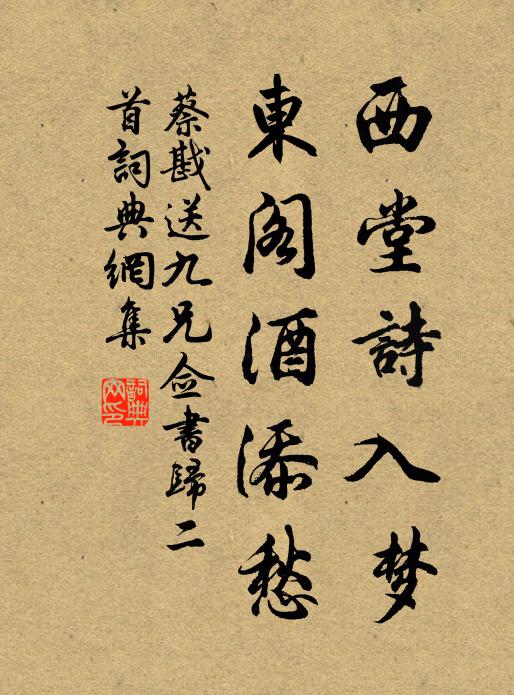 西堂詩入梦
東阁酒添愁
蔡戡送九兄佥書歸二
首詞典網集
詞典网印